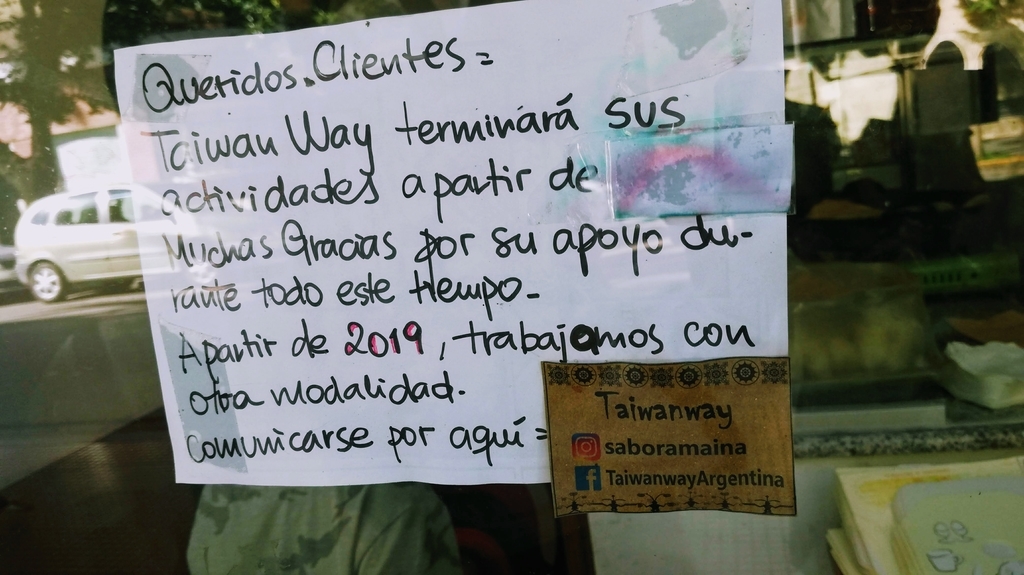 Queridos Clientes=
Taiwan Way terminará sus
actividades a partir de
Muchas Gracias por su apoyo du-
rante todo este tiempo-
A partir de 2019, trabajamos con
otra modalidad.
Comunicarse por aquí=
Taiwanway
saboramaina
TaiwanwayArgentina